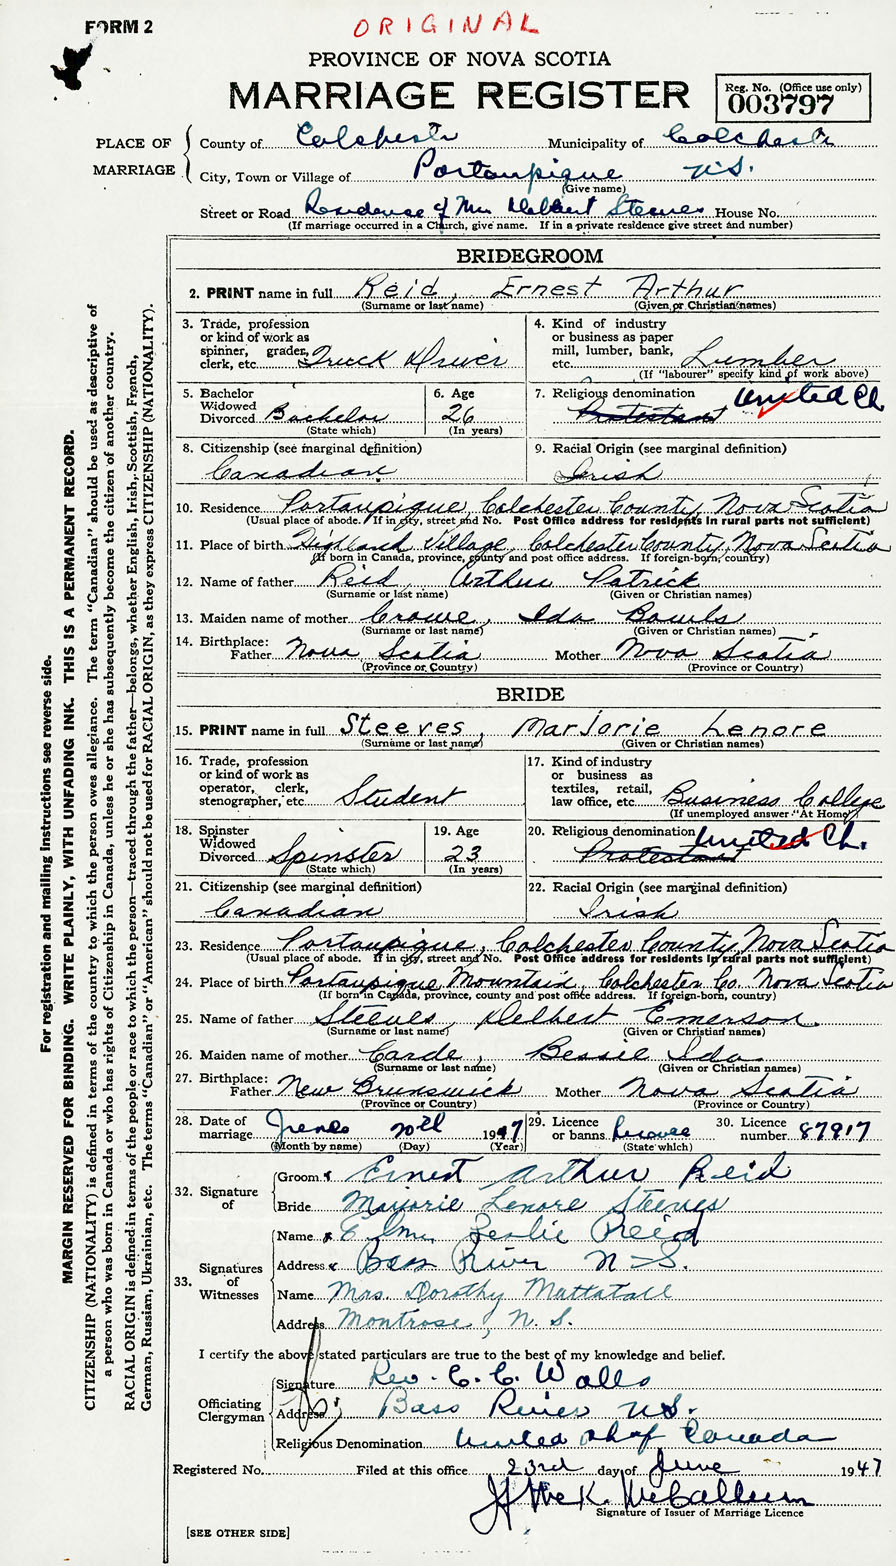 FORM 2
ORIGINAL
PROVINCE OF NOVA SCOTIA
MARRIAGE REGISTER
Reg. No. (Office use only)
003797
PLACE OF MARRIAGE
County of Colchester Municipality of Colchester
City, Town or Village of Portaupique N.S.
(Give name)
Street or Road Residence of Mr. Delbert Steeves House No.
(If marriage occurred in a Church, give name. If in a private residence give street and number)
BRIDEGROOM
2. PRINT name in full Reid, Ernest Arthur
(Surname or last name) (Given or Christian names)
3. Trade, profession or kind of work as spinner, grader, clerk, etc. Truck Driver
4. Kind of industry or business as paper mill, lumber, bank, etc. Lumber
(If "labourer" specify kind of work above)
5. Bachelor Widowed Divorced Bachelor
(State which)
6. Age 26
(In years)
7. Religious denomination United Ch.
Protestant
8. Citizenship (see marginal definition)
Canadian
9. Racial Origin (see marginal definition)
Irish
10. Residence Portaupique, Colchester County, Nova Scotia
(Usual place of abode. If in city, street and No. Post Office address for residents in rural parts not sufficient)
11. Place of birth Highland Village, Colchester County, Nova Scotia
(If born in Canada, province, county and post office address. If foreign-born, country)
12. Name of father Reid, Arthur Patrick
(Surname or last name) (Given or Christian names)
13. Maiden name of mother Crowe, Ida
(Surname or last name) (Given or Christian names)
14. Birthplace:
Father Nova Scotia Mother Nova Scotia
(Province or Country) (Province or Country)
BRIDE
15. PRINT name in full Steeves, Marjorie Lenore
(Surname or last name) (Given or Christian names)
16. Trade, profession or kind of work as operator, clerk, stenographer, etc. Student
17. Kind of industry or business as textiles, retail, law office, etc. Business College
(If unemployed answer "At Home")
18. Spinster Widowed Divorced Spinster
(State which)
19. Age 23
(In years)
20. Religious denomination United Ch.
Protestant
21. Citizenship (see marginal definition)
Canadian
22. Racial Origin (see marginal definition)
Irish
23. Residence Portaupique, Colchester County Nova Scotia
(Usual place of abode. If in city, street and No. Post Office address for residents in rural parts not sufficient)
24. Place of birth Portaupique Mountain, Colchester Co. Nova Scotia
(If born in Canada, province, county and post office address. If foreign-born, country)
25. Name of father Steeves, Delbert Emerson
(Surname or last name) (Given or Christian names)
26. Maiden name of mother Carde, Bessie Ida
(Surname or last name) (Given or Christian names)
27. Birthplace:
Father New Brunswick Mother Nova Scotia
(Province or Country) (Province or Country)
28. Date of marriage 1947
(Month by name) (Day) (Year)
29. Licence or banns
(State which)
30. Licence number 87917
32. Signature of
Groom Ernest Arthur Reid
Bride Marjorie Lenore Steeves
33. Signatures of Witnesses
Name Leslie Reid
Address Bass River N-S.
Name Mrs. Dorothy Mattatall
Address Montrose, N. S.
I certify the above stated particulars are true to the best of my knowledge and belief.
Officiating Clergyman
Signature Rev. C. C. Walls
Address Bass River N.S.
Religious Denomination United Ch of Canada
Registered No. Filed at this office 23rd day of June 1947
McCallum
Signature of Issuer of Marriage Licence
[SEE OTHER SIDE]
For registration and mailing instructions see reverse side.
MARGIN RESERVED FOR BINDING. WRITE PLAINLY, WITH UNFADING INK. THIS IS A PERMANENT RECORD.
CITIZENSHIP (NATIONALITY) is defined in terms of the country to which the person owes allegiance. The term "Canadian" should be used as descriptive of
a person who was born in Canada or who has rights of Citizenship in Canada, unless he or she has subsequently become the citizen of another country.
RACIAL ORIGIN is defined in terms of the people or race to which the person—traced through the father—belongs, whether English, Irish, Scottish, French,
German, Russian, Ukrainian, etc. The terms "Canadian" or "American" should not be used for RACIAL ORIGIN, as they express CITIZENSHIP (NATIONALITY).